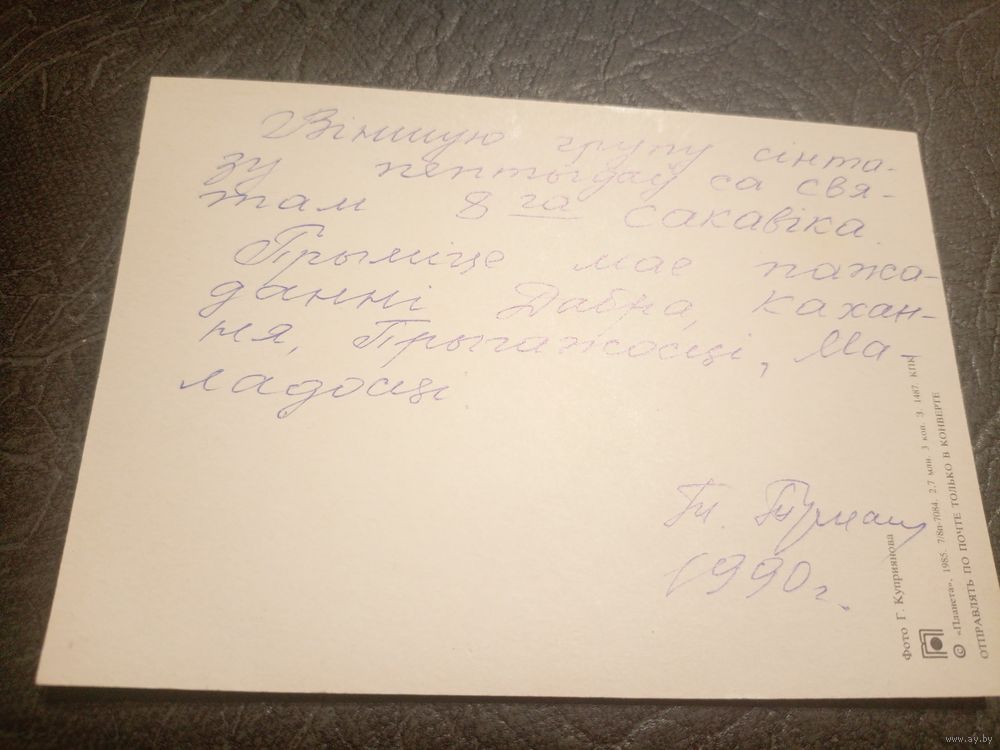 Віншую групу сінтэ-
зу пептыдаў са свя-
там 8 га сакавіка.
Прыміце мае пажа-
данні Дабра, кахан-
ня, Прыгажосці, Ма-
ладосці.
1990 г.
Фото Г. Куприянова
© «Планета», 1985. 7/8п-7084. 2,7 млн. 3 коп. З. 1487. КПК
ОТПРАВЛЯТЬ ПО ПОЧТЕ ТОЛЬКО В КОНВЕРТЕ
www.ay.by